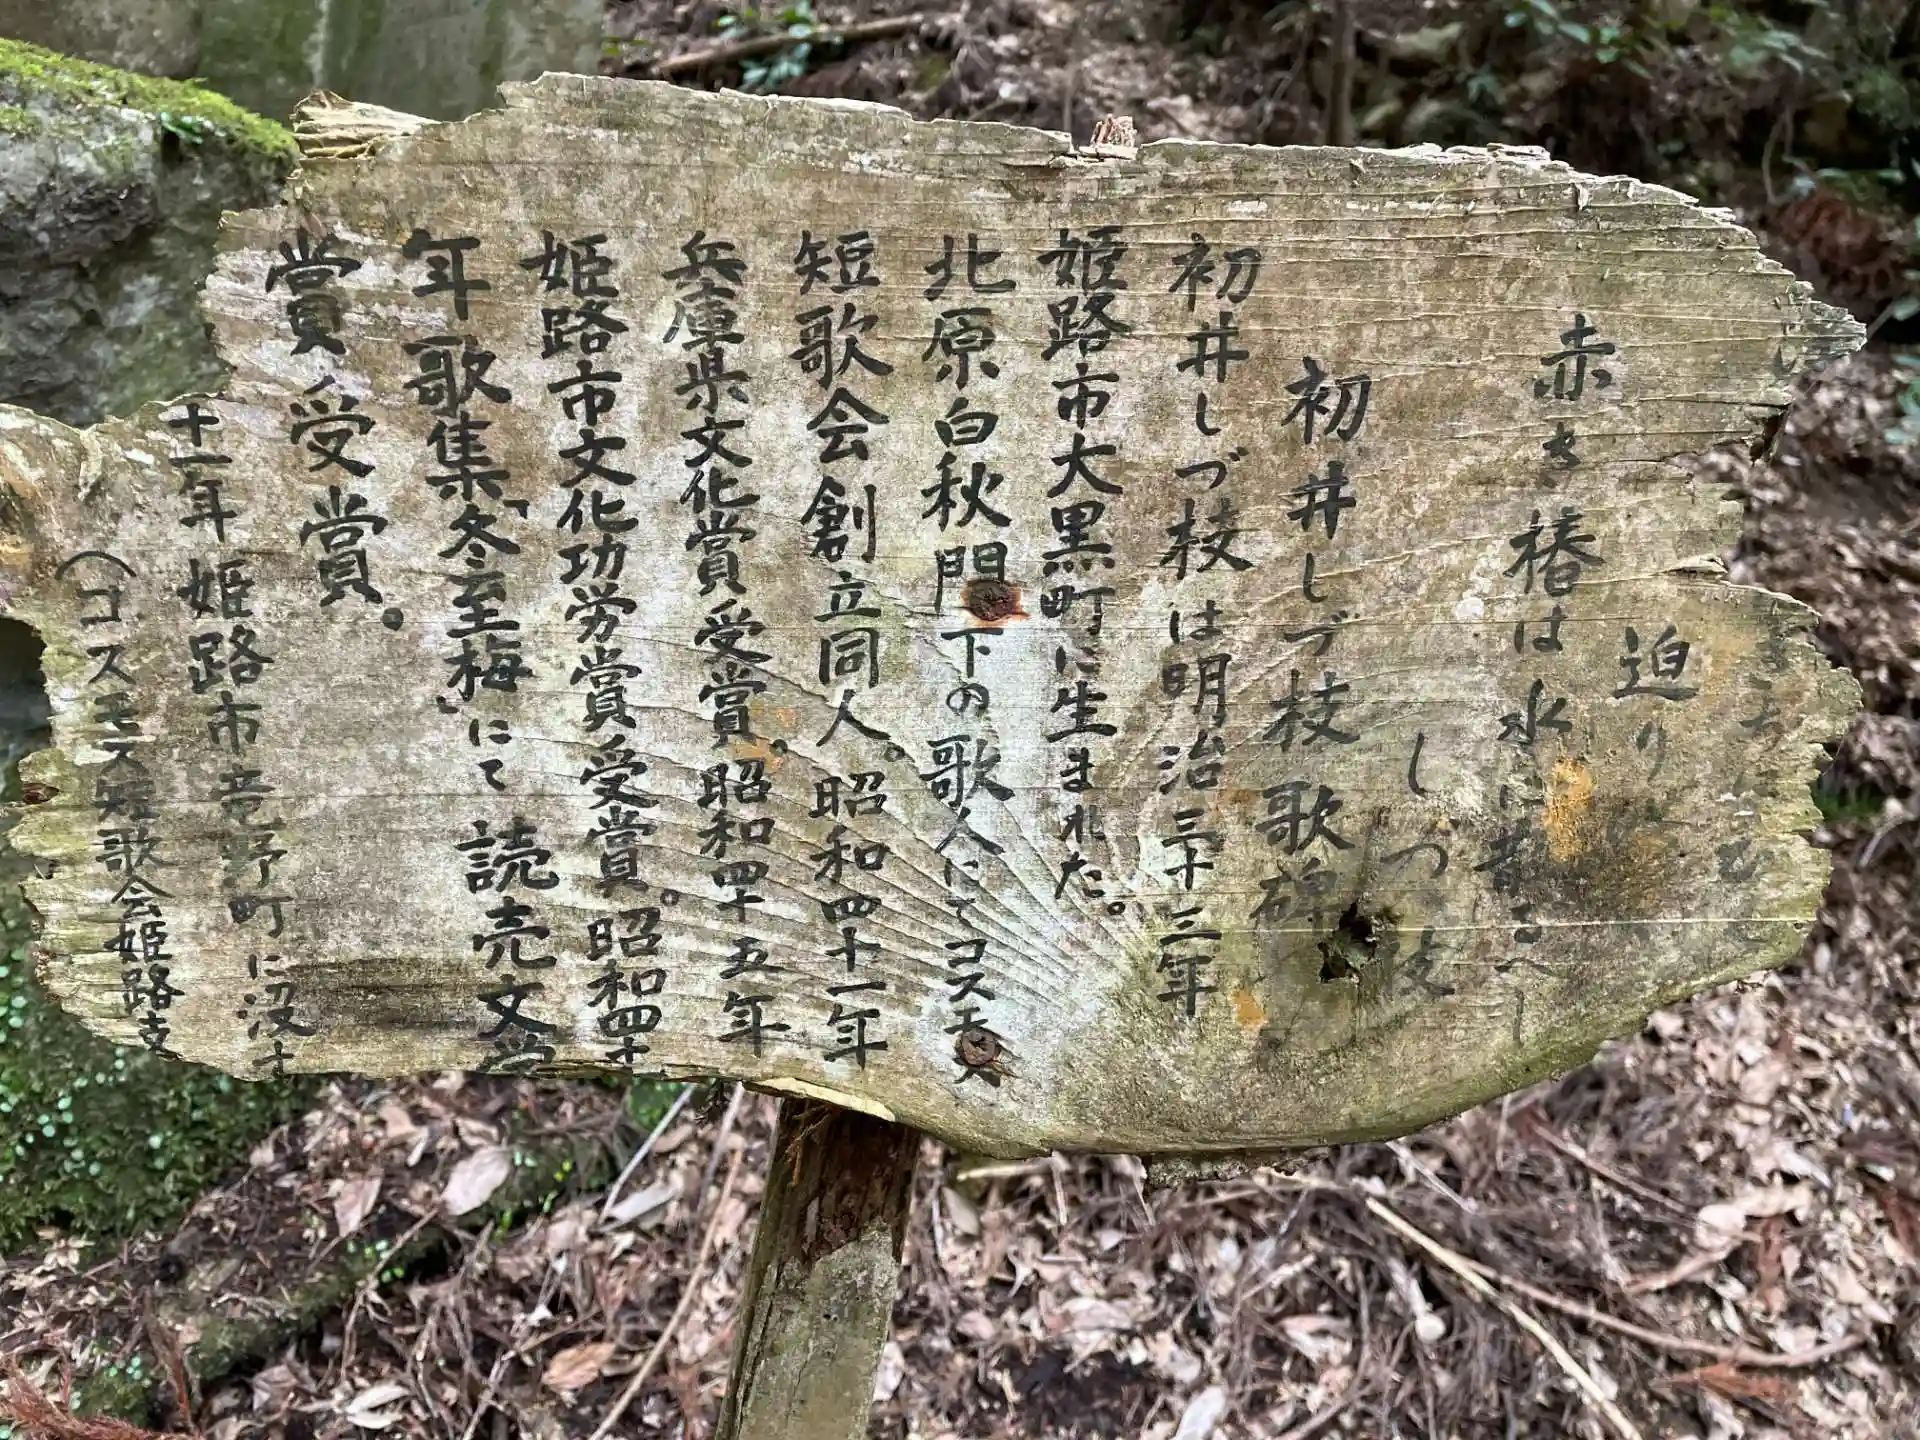 迫り
赤き椿は水に
しづ枝
初井しづ枝歌碑
初井しづ枝は明治三十三年
姫路市大黒町に生まれた。
北原白秋門下の歌人にてコスモス
短歌会創立同人。昭和四十一年
兵庫県文化賞受賞。昭和四十五年
姫路市文化功労賞受賞。昭和四十
年歌集「冬至梅」にて読売文学
賞受賞。
十一年姫路市老野町に没す
(コスモス短歌会姫路支